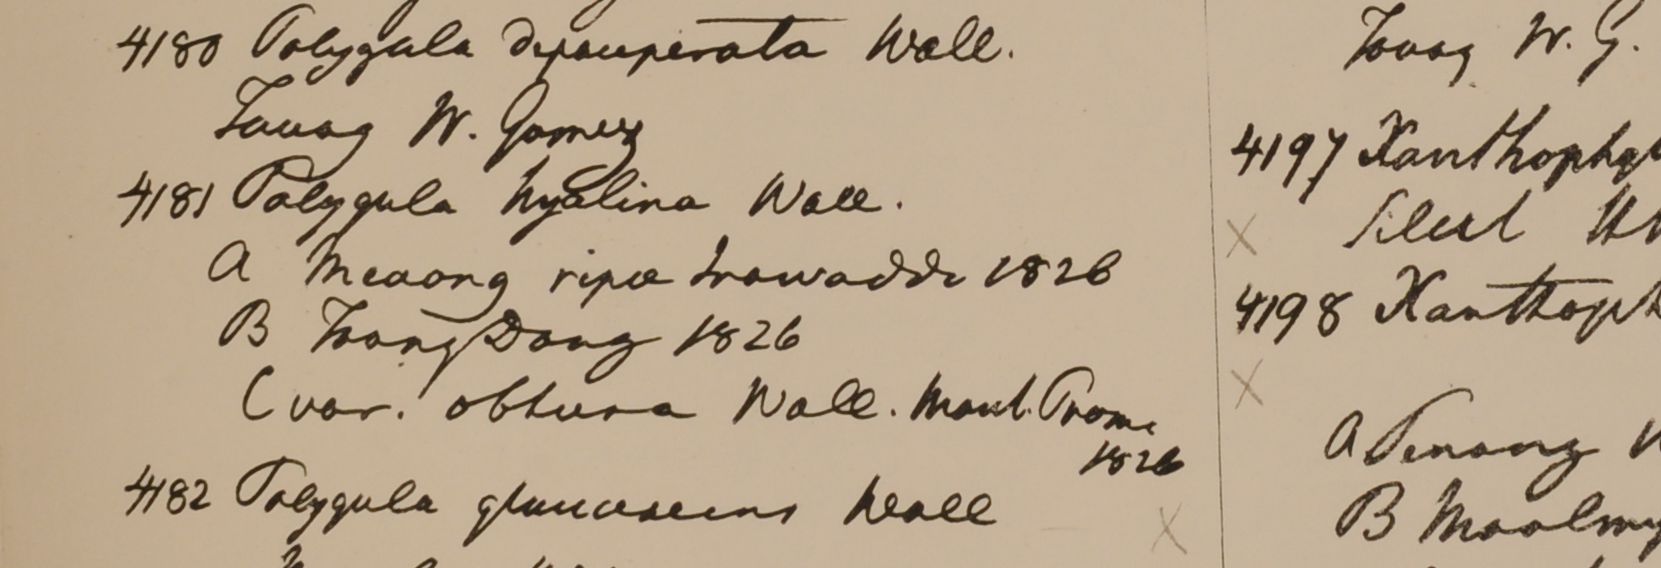 4180 Polygala depauperata Wall.
Tavoy W. Gomez
4181 Polygala hyalina Wall.
A Meaong ripa Irawaddi 1826
B Taong Dong 1826
C var. obtusa Wall. Mont. Prome
1826
4182 Polygala glaucescens Wall
Tavoy W. G.
4197 Xanthophy
X Silhet
4198 Xanthoph
X
A Penang
B Moolmy